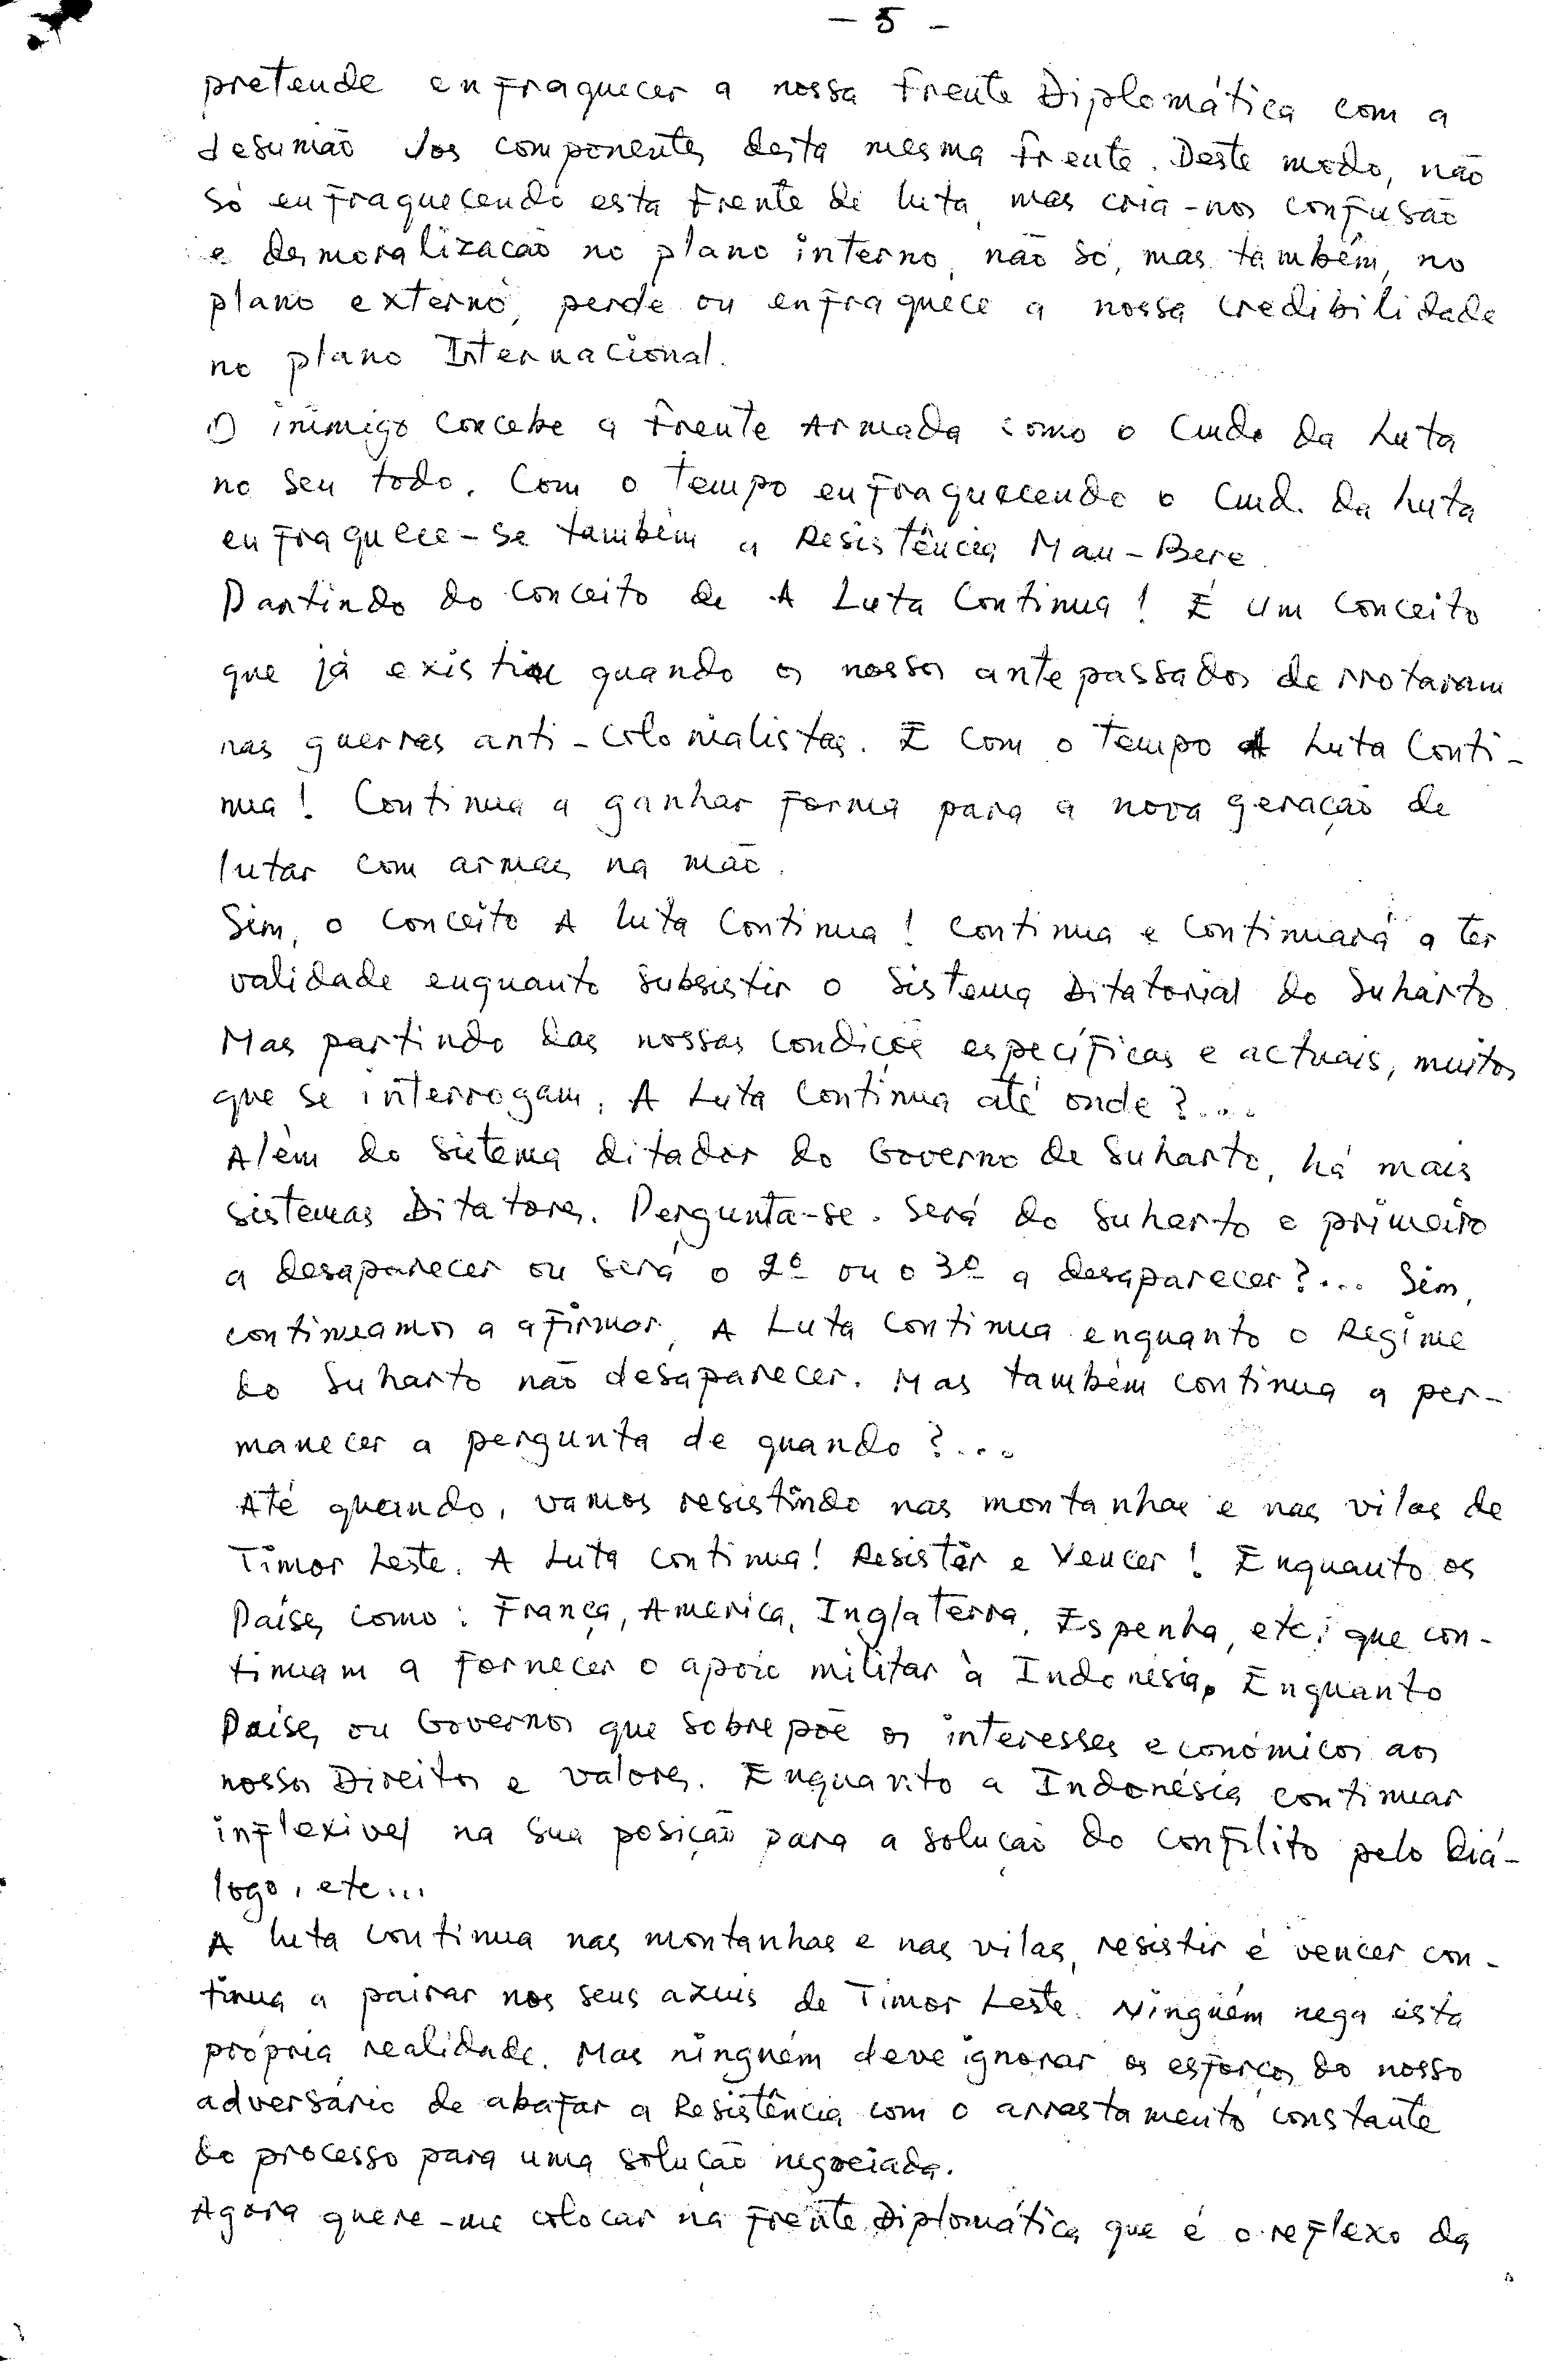 - 5 -
pretende enfraquecer a nossa Frente Diplomática com a
desunião dos componentes desta mesma frente. Deste modo, não
só enfraquecendo esta Frente de luta, mas cria-nos confusão
e desmoralizacão no plano interno, não só, mas também, no
plano externo, perde ou enfraquece a nossa credibilidade
no plano Internacional.
O inimigo concebe a Frente Armada como o Cmdo da Luta
no seu todo. Com o tempo enfraquecendo o Cmd. da Luta
enfraquece-se também a Resistência Mau-Bere.
Partindo do conceito de A Luta Continua! É um conceito
que já existia quando os nossos antepassados derrotaram
nas guerras anti-colonialistas. E com o tempo A Luta Conti-
nua! Continua a ganhar forma para a nova geração de
lutar com armas na mão.
Sim, o conceito A Luta Continua! continua e continuará a ter
validade enquanto subsistir o Sistema Ditatorial do Suharto.
Mas partindo das nossas condições específicas e actuais, muitos
que se interrogam, A Luta Continua até onde?....
Além do sistema ditador do Governo de Suharto, há mais
sistemas Ditatores. Pergunta-se. Será do Suharto o primeiro
a desaparecer ou será o 2º ou o 3º a desaparecer?... Sim,
continuamos a afirmar, A Luta continua enquanto o Regime
do Suharto não desaparecer. Mas também continua a per-
manecer a pergunta de quando?....
Até quando, vamos resistindo nas montanhas e nas vilas de
Timor Leste. A Luta continua! Resistir e Vencer! Enquanto os
Países como: França, America, Inglaterra, Espenha, etc; que con-
tinuam a fornecer o apoio militar à Indonésia. Enquanto
Países ou Governos que sobrepõe os interesses económicos aos
nossos Direitos e valores. Enquanto a Indonésia continuar
inflexivel na sua posição para a solução do conflito pelo diá-
logo, etc...
A luta continua nas montanhas e nas vilas, resistir é vencer con-
tinua a pairar nos seus azuis de Timor Leste. Ninguém nega esta
própria realidade. Mas ninguém deve ignorar os esforços do nosso
adversário de abafar a Resistência com o arrastamento constante
do processo para uma solução negociada.
Agora quere-me colocar na Frente Diplomática que é o reflexo da